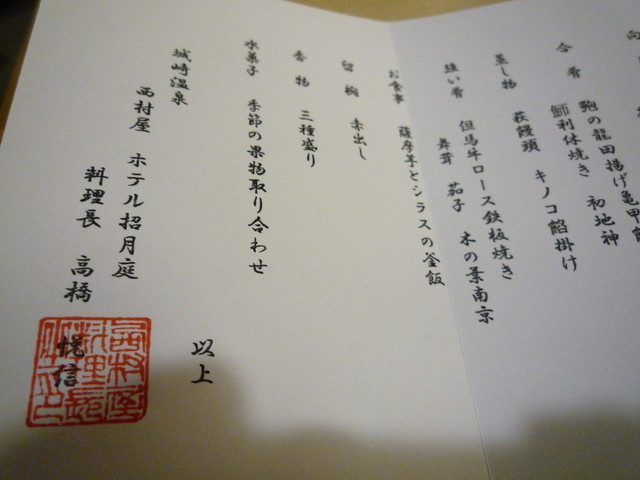 合肴 鮑の龍田揚げ亀甲餡 初地神
鰤利休焼き
蒸し物 萩饅頭 キノコ餡掛け
強い肴 但馬牛ロース鉄板焼き
舞茸 茄子 木の葉南京
お食事 薩摩芋とシラスの釜飯
留椀 赤出し
香物 三種盛り
水菓子 季節の果物取り合わせ
以上
城崎温泉
西村屋 ホテル招月庭
料理長 高橋 悦信